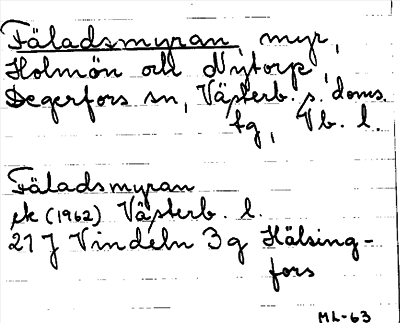 Fäladsmyran, myr,
Holmön och Nytorp,
Degerfors sn, Västerb. s. doms.
tg, Vb. l.
Fäladsmyran
ek (1962) Västerb. l.
21 J Vindeln 3g Hälsing-
fors
ML-63